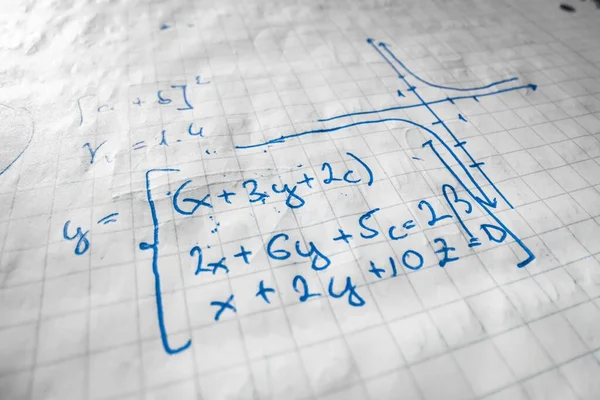 [a + b]²
y = 1.4
y = (x + 3y + 2c)
2x + 6y + 5c = 2β
x + 2y + 10z = 0